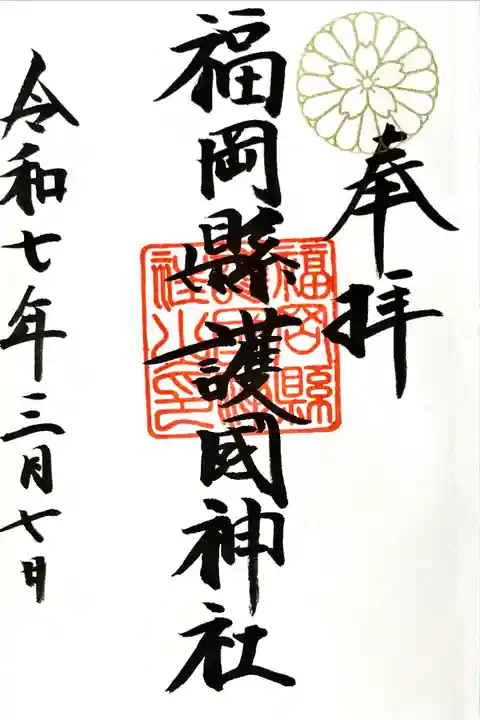 奉拝
福岡縣護國神社
福岡縣護國神社之印
令和七年三月七日